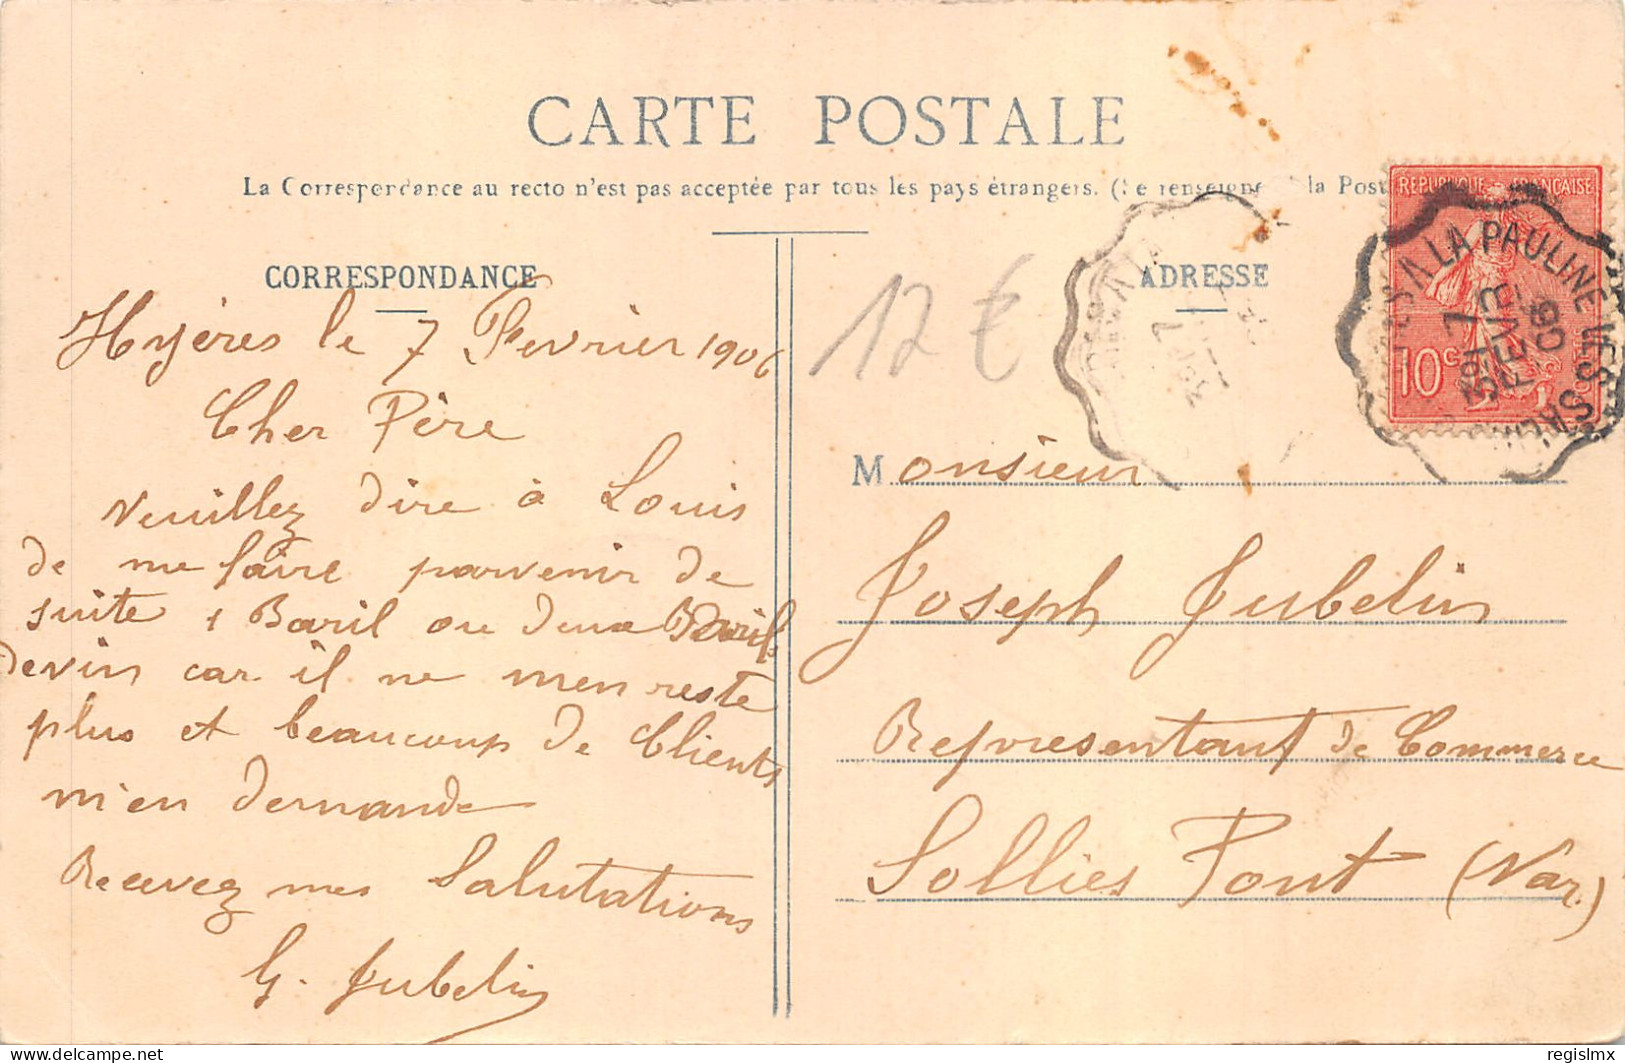 CARTE POSTALE
La Correspondance au recto n'est pas acceptée par tous les pays étrangers. (Se renseigner à la Post
CORRESPONDANCE
Hyères le 7 Fevrier 1906
Cher Père
Veuillez dire à Louis
de me faire parvenir de
suite 1 Baril ou deux Barils
devin car il ne men reste
plus et beaucoup de Clients
m'en demande
Recevez mes Salutations
G. Jubelin
12 €
ADRESSE
REPUBLIQUE FRANÇAISE
10 c
A LA PAULINE
7
FEVR
06
Monsieur
Joseph Jubelin
Representant de Commerce
Sollies Pont (Var.)
delcampe.net
regislmx